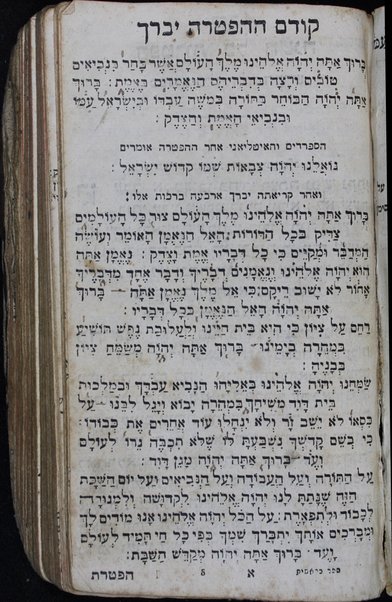 קודם ההפטרה יברך
בָּרוּךְ אַתָּה יְהֹוָה אֱלֹהֵינוּ מֶלֶךְ הָעוֹלָם אֲשֶׁר בָּחַר בִּנְבִיאִים
טוֹבִים וְרָצָה בְדִבְרֵיהֶם הַנֶּאֱמָרִים בֶּאֱמֶת: בָּרוּךְ
אַתָּה יְהֹוָה הַבּוֹחֵר בַּתּוֹרָה בְּמֹשֶׁה עַבְדּוֹ וּבְיִשְׂרָאֵל עַמּוֹ
וּבִנְבִיאֵי הָאֱמֶת וְהַצֶּדֶק:
הספרדים והאיטליאני אחר ההפטרה אומרים
גּוֹאֲלֵנוּ יְהֹוָה צְבָאוֹת שְׁמוֹ קְדוֹשׁ יִשְׂרָאֵל:
ואחר קריאתה יברך ארבעה ברכות אלו:
בָּרוּךְ אַתָּה יְהֹוָה אֱלֹהֵינוּ מֶלֶךְ הָעוֹלָם צוּר כָּל הָעוֹלָמִים
צַדִּיק בְּכָל הַדּוֹרוֹת הָאֵל הַנֶּאֱמָן הָאוֹמֵר וְעוֹשֶׂה
הַמְדַבֵּר וּמְקַיֵּם כִּי כָל דְּבָרָיו אֱמֶת וָצֶדֶק: נֶאֱמָן אַתָּה
הוּא יְהֹוָה אֱלֹהֵינוּ וְנֶאֱמָנִים דְּבָרֶיךָ וְדָבָר אֶחָד מִדְּבָרֶיךָ
אָחוֹר לֹא יָשׁוּב רֵיקָם כִּי אֵל מֶלֶךְ נֶאֱמָן אָתָּה — בָּרוּךְ
אַתָּה יְהֹוָה הָאֵל הַנֶּאֱמָן בְּכָל דְּבָרָיו:
רַחֵם עַל צִיּוֹן כִּי הִיא בֵּית חַיֵּינוּ וְלַעֲלוּבַת נֶפֶשׁ תּוֹשִׁיעַ
בִּמְהֵרָה בְיָמֵינוּ — בָּרוּךְ אַתָּה יְהֹוָה מְשַׂמֵּחַ צִיּוֹן
בְּבָנֶיהָ:
שַׂמְּחֵנוּ יְהֹוָה אֱלֹהֵינוּ בְּאֵלִיָּהוּ הַנָּבִיא עַבְדֶּךָ וּבְמַלְכוּת
בֵּית דָּוִד מְשִׁיחֶךָ בִּמְהֵרָה יָבוֹא וְיָגֵל לִבֵּנוּ — עַל
כִּסְאוֹ לֹא יֵשֵׁב זָר וְלֹא יִנְחֲלוּ עוֹד אֲחֵרִים אֶת כְּבוֹדוֹ:
כִּי בְשֵׁם קָדְשְׁךָ נִשְׁבַּעְתָּ לּוֹ שֶׁלֹּא תִכְבֶּה נֵרוֹ לְעוֹלָם
וָעֶד — בָּרוּךְ אַתָּה יְהֹוָה מָגֵן דָּוִד:
עַל הַתּוֹרָה וְעַל הָעֲבוֹדָה וְעַל הַנְּבִיאִים וְעַל יוֹם הַשַּׁבָּת
הַזֶּה שֶׁנָּתַתָּ לָנוּ יְהֹוָה אֱלֹהֵינוּ לִקְדֻשָּׁה וְלִמְנוּחָה
לְכָבוֹד וּלְתִפְאָרֶת: עַל הַכֹּל יְהֹוָה אֱלֹהֵינוּ אָנוּ מוֹדִים לָךְ
וּמְבָרְכִים אוֹתָךְ יִתְבָּרַךְ שִׁמְךָ בְּפִי כָּל חַי תָּמִיד לְעוֹלָם
וָעֶד: בָּרוּךְ אַתָּה יְהֹוָה מְקַדֵּשׁ הַשַּׁבָּת:
ספר בראשית א 8 הפטרת